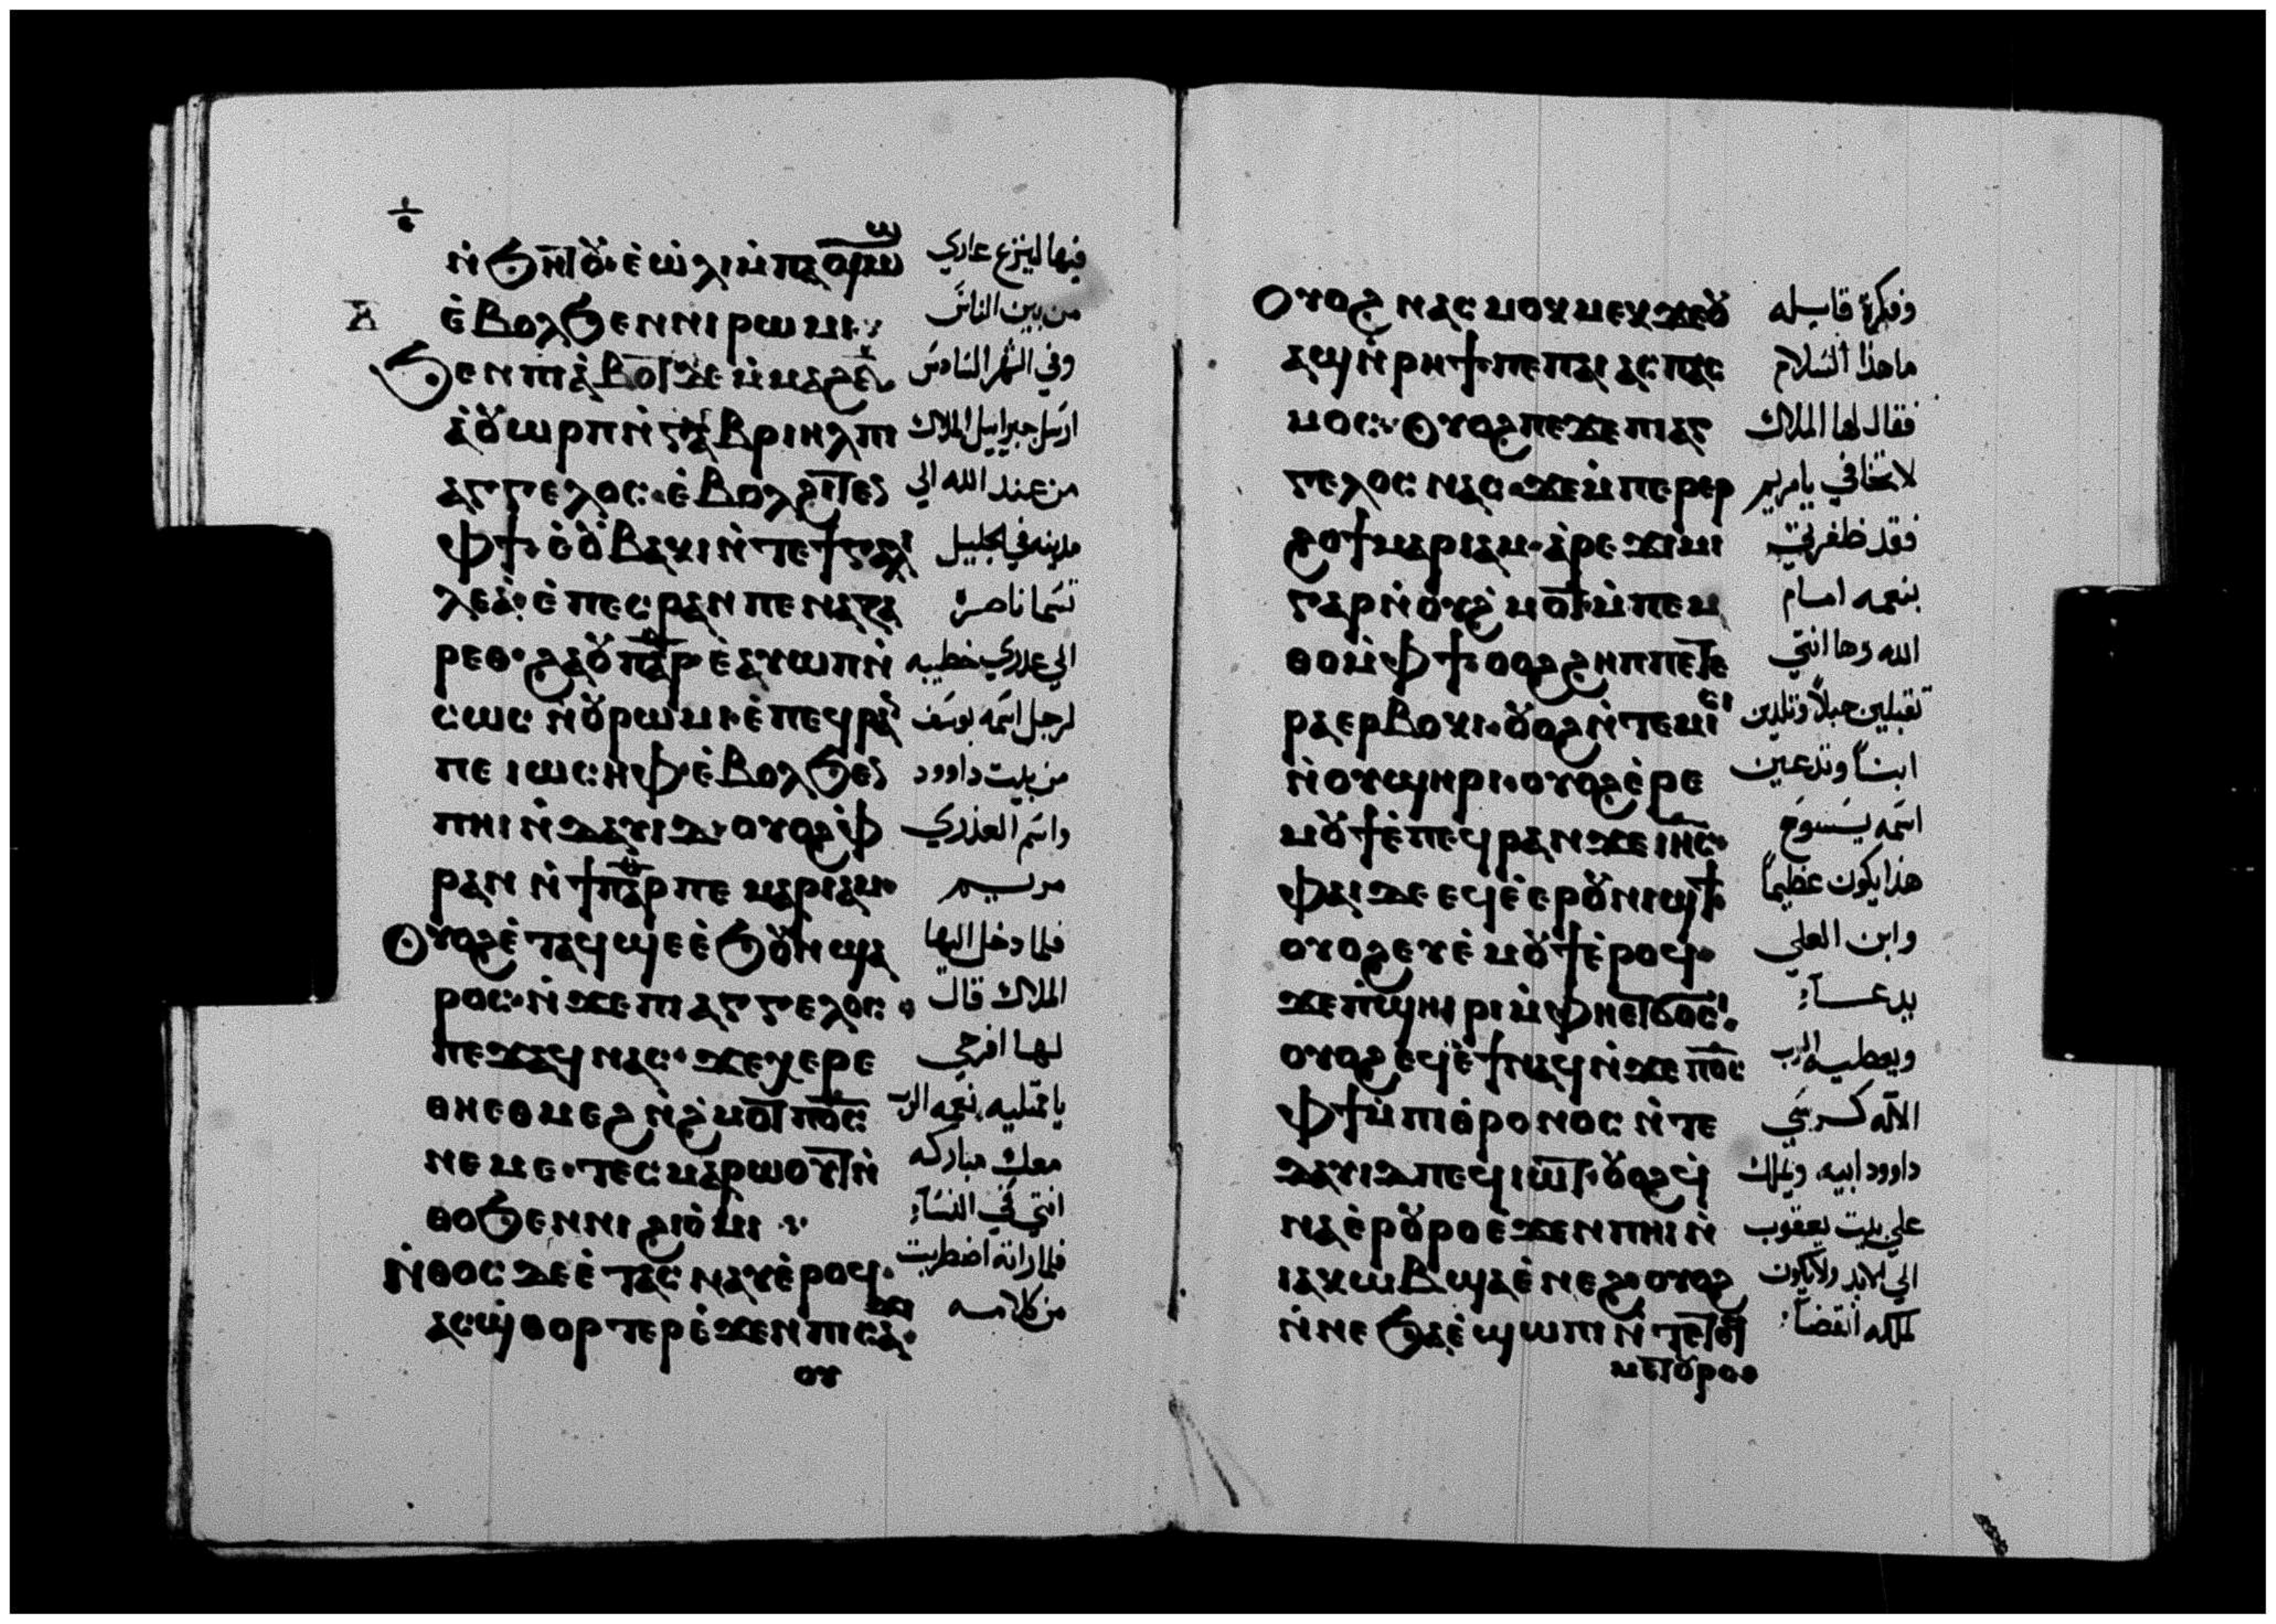 ⲉ̀ⲃⲟⲗϧⲉⲛⲛⲓⲣⲱⲙⲓ
ⲁ̀ⲟⲩⲱⲣⲡⲛ̀ⲅⲁⲃⲣⲓⲏⲗⲡⲓ
ⲁⲅⲅⲉⲗⲟⲥ·ⲉ̀ⲃⲟⲗϩⲓⲧⲉⲛ
ⲫϯ·ⲉ̀ⲟⲩⲃⲁⲕⲓⲛ̀ⲧⲉϯⲅⲁⲗⲓ
ⲗⲉⲁ̀·ⲉ̀ⲡⲉⲥⲣⲁⲛⲡⲉⲛⲁⲍⲁ
ⲣⲉⲑ·ϩⲁⲟⲩⲡⲁⲣ·ⲉ̀ⲁⲩⲱⲡⲛ̀
ⲥⲱⲥⲛ̀ⲟⲩⲣⲱⲙⲓ·ⲉ̀ⲡⲉϥⲣⲁⲛ
ⲡⲉⲓⲱⲥⲏⲫ·ⲉ̀ⲃⲟⲗϧⲉⲛ
ⲡⲏⲓⲛ̀ⲇⲁⲩⲓⲇ·ⲟⲩⲟϩⲫ̀
ⲣⲁⲛⲛ̀ϯⲡⲁⲣⲡⲉⲙⲁⲣⲓⲁⲙ·
ⲟⲩⲟϩⲉ̀ⲧⲁϥϣⲉⲉ̀ϧⲟⲩⲛϣⲁ
ⲣⲟⲥ·ⲛ̀ϫⲉⲡⲓⲁⲅⲅⲉⲗⲟⲥ·
ⲡⲉϫⲁϥⲛⲁⲥ·ϫⲉⲭⲉⲣⲉ
ⲑⲏⲉⲑⲙⲉϩⲛ̀ϩ̀ⲙⲟⲧⲡⲟ̅ⲥ̅
ⲛⲉⲙⲉ·ⲧⲉⲥⲙⲁⲣⲱⲟⲩⲧⲛ̀
ⲑⲟϧⲉⲛⲛⲓϩⲓⲟ̀ⲙⲓ
ⲛ̀ⲑⲟⲥⲇⲉⲉ̀ⲧⲁⲥⲛⲁⲩⲉ̀ⲣⲟϥ·
ⲁⲥϣ̀ⲑⲟⲣⲧⲉⲣⲉ̀ϫⲉⲛⲡⲓⲥⲁϫⲓ·
ⲟⲩ
فيها لينزع عاري
من بين الناس
وفي الشهر السادس
ارسل جبراييل الملاك
من عند الله الي
مدينه في الجليل
تسما ناصره
الي عدري خطيبه
لرجل اسمه يوسف
من بيت داوود
واسم العذري
مريم
فلما دخل اليها
الملاك قال
لها افرحي
يا ممتليه نعمه الرب
معك مباركه
انتي في النساء
فلما راته اضطربت
من كلامه
ⲟⲩⲟϩⲛⲁⲥⲙⲟⲕⲙⲉⲕϫⲉⲟⲩ
ⲁϣⲛ̀ⲣⲏϯ·ⲡⲉⲡⲁⲓⲁⲥⲡⲁⲥ
ⲙⲟⲥ·ⲟⲩⲟϩⲡⲉϫⲉⲡⲓⲁⲅ
ⲅⲉⲗⲟⲥⲛⲁⲥ·ϫⲉⲙ̀ⲡⲉⲣⲉⲣ
ϩⲟϯⲙⲁⲣⲓⲁⲙ·ⲁ̀ⲣⲉϫⲓⲙⲓ
ⲅⲁⲣⲛ̀ⲟⲩϩ̀ⲙⲟⲧ·ⲙ̀ⲡⲉⲙ
ⲑⲟⲙ̀ⲫϯ·ⲟⲟϩϩⲏⲡⲡⲉⲧⲉ
ⲣⲁⲉⲣⲃⲟⲕⲓ·ⲟⲩⲟϩⲛ̀ⲧⲉⲙⲓⲥⲓ
ⲛ̀ⲟⲩϣⲏⲣⲓ·ⲟⲩⲟϩⲉ̀ⲣⲉ
ⲙⲟⲩϯⲉ̀ⲡⲉϥⲣⲁⲛϫⲉⲓⲏ̅ⲥ̅·
ⲫⲁⲓⲇⲉⲉϥⲉ̀ⲉⲣⲟⲩⲛⲓϣϯ·
ⲟⲩⲟϩⲉⲩⲉ̀ⲙⲟⲩϯⲉ̀ⲣⲟϥ·
ϫⲉⲡ̀ϣⲏⲣⲓⲙ̀ⲫⲏⲉⲧϭⲟⲥⲓ·
ⲟⲩⲟϩⲉϥⲉ̀ϯⲛⲁϥⲛ̀ϫⲉⲡⲟ̅ⲥ̅
ⲫϯⲙ̀ⲡⲓⲑ̀ⲣⲟⲛⲟⲥⲛ̀ⲧⲉ
ⲇⲁⲩⲓⲇⲡⲉϥⲓⲱⲧ·ⲟⲩⲟϩϥ̀
ⲛⲁⲉ̀ⲣⲟⲩⲣⲟⲉ̀ϫⲉⲛⲡⲏⲓⲛ̀
ⲓⲁⲕⲱⲃϣⲁⲉ̀ⲛⲉϩ·ⲟⲩⲟϩ
ⲛ̀ⲛⲉϧⲁⲉ̀ϣⲱⲡⲓⲛ̀ⲧⲉϥ
ⲙⲉⲧⲟⲩⲣⲟ
وفكرة قايله
ما هذا السلام
فقال لها الملاك
لا تخافي يا مريم
فقد ظفرتي
بنعمه امام
الله وها انتي
تقبلين حبلاً وتلدين
ابناً وتدعين
اسمه يسوع
هذا يكون عظيماً
وابن العلي
يدعا
ويعطيه الرب
الاله كرسي
داوود ابيه ويملك
علي بيت يعقوب
الي الابد ولا يكون
لملكه انقضاء